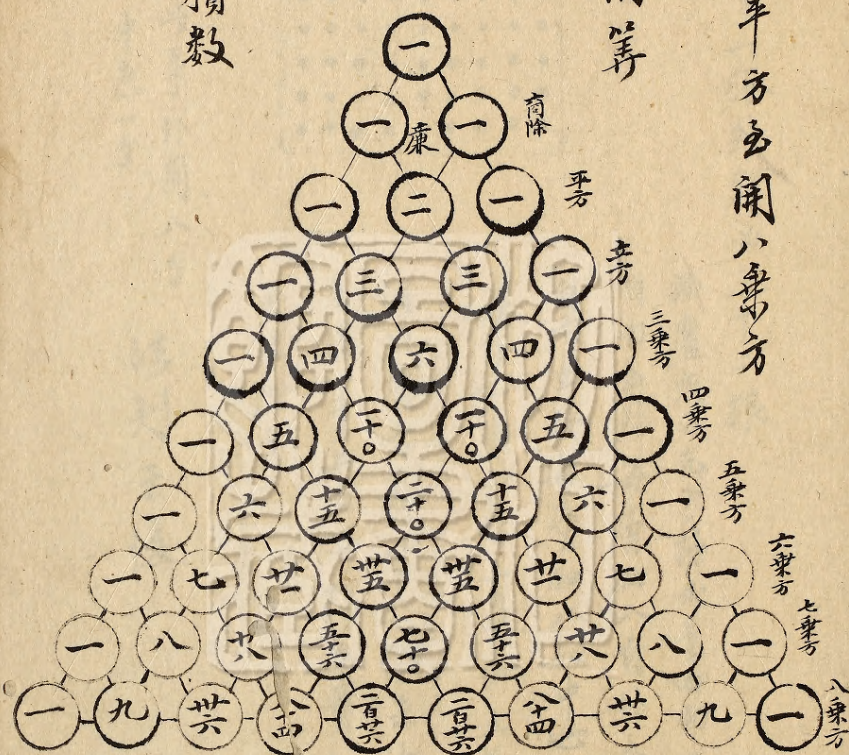 平方至開八乗方
筭
数
一
一 廉 一 商除
一 二 一 平方
一 三 三 一 立方
一 四 六 四 一 三乗方
一 五 一十〇 一十〇 五 一 四乗方
一 六 十五 二十〇 十五 六 一 五乗方
一 七 廿一 卅五 卅五 廿一 七 一 六乗方
一 八 廿八 五十六 七十〇 五十六 廿八 八 一 七乗方
一 九 卅六 八十四 一百廿六 一百廿六 八十四 卅六 九 一 八乗方